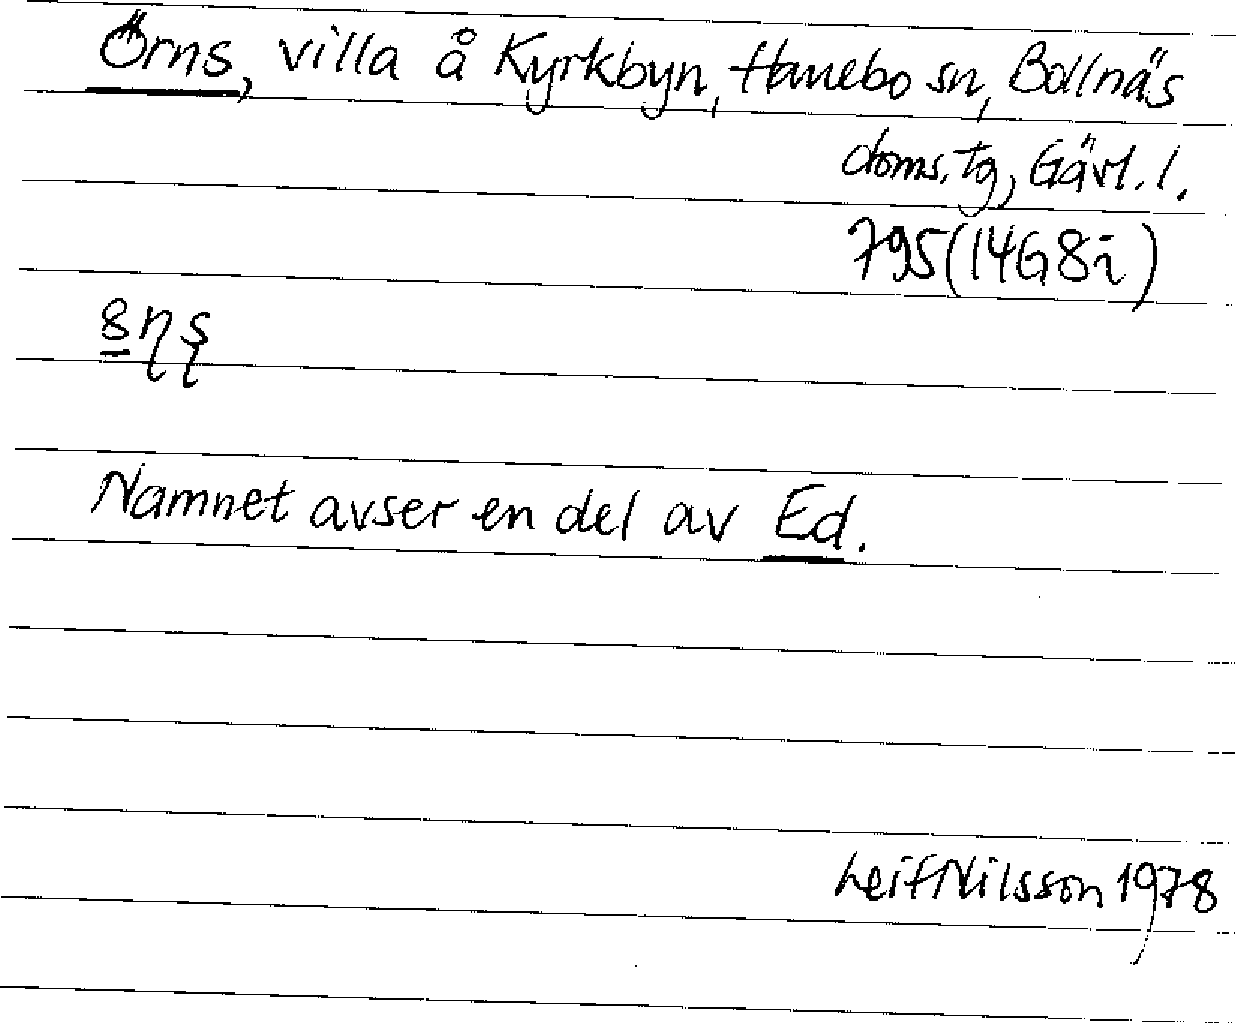 Örns, villa å Kyrkbyn, Hanebo sn, Bollnäs
doms. tg, Gävl. l.
795 (14G8i)
Namnet avser en del av Ed.
Leif Nilsson 1978